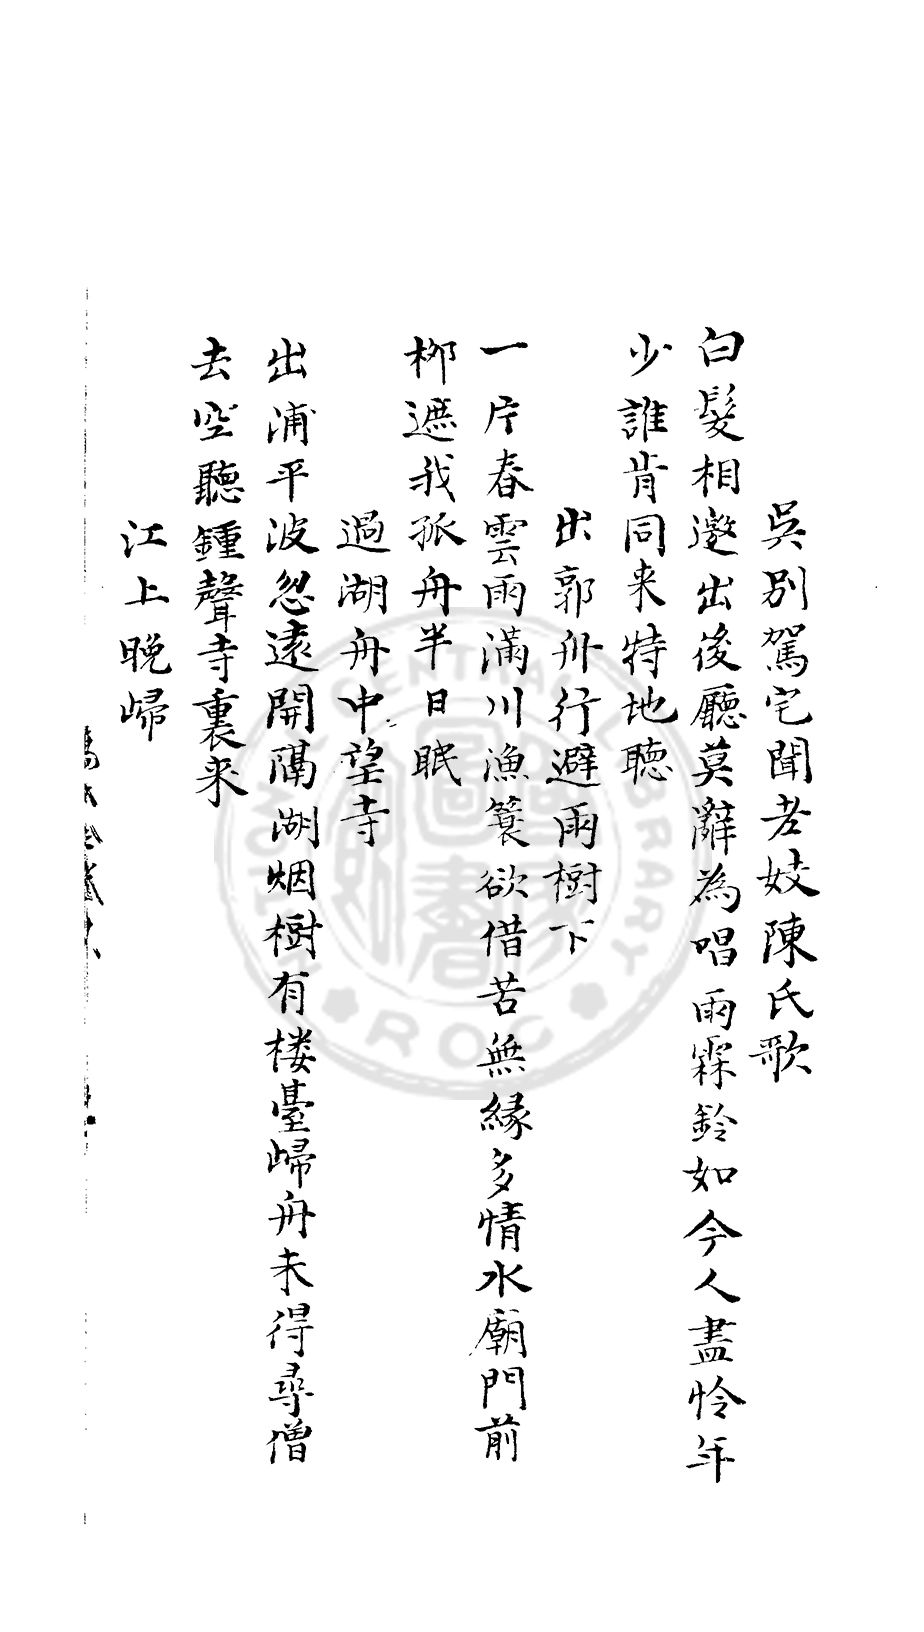 吳別駕宅聞老妓陳氏歌
白髮相邀出後廳莫辭為唱雨霖鈴如今人盡怜年
少誰肯同来特地聽
出郭舟行避雨樹下
一片春雲雨滿川漁簑欲借苦無緣多情水廟門前
栁遮我孤舟半日眠
過湖舟中望寺
出浦平波忽遠開隔湖烟樹有楼臺歸舟未得尋僧
去空聽鍾聲寺裏来
江上晚歸
CENTRAL LIBRARY
ROC